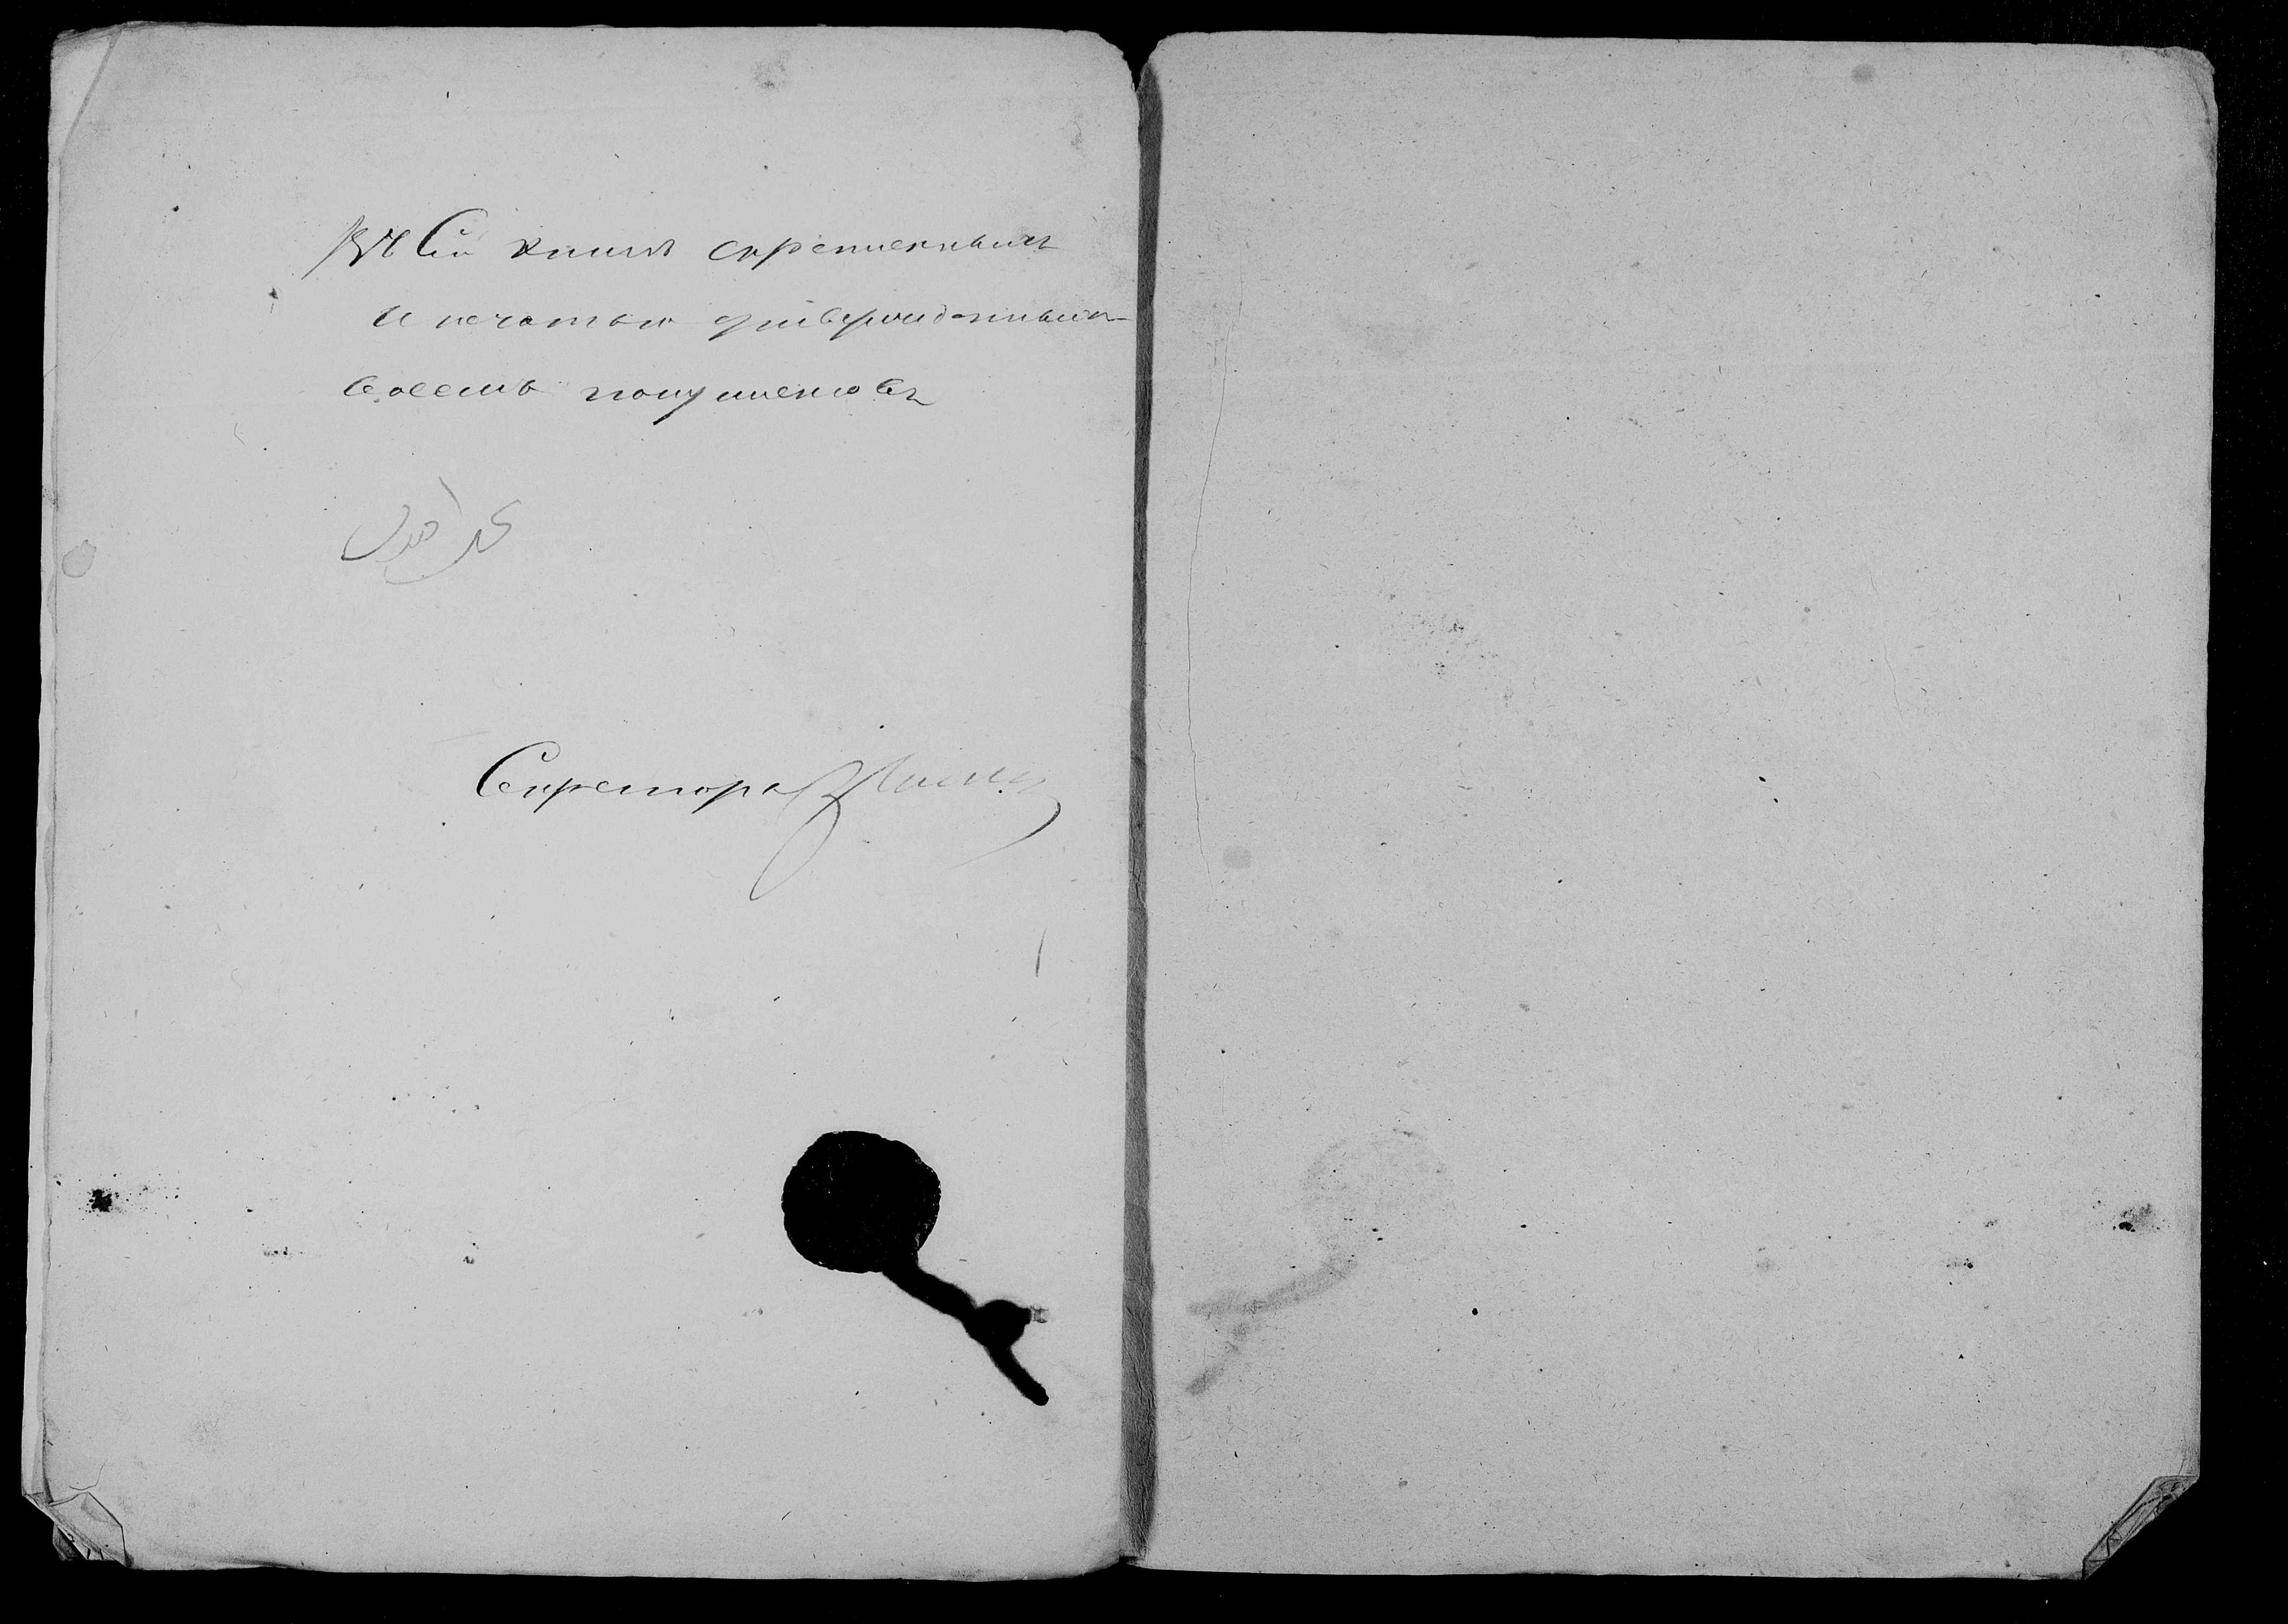 Въ Сей книге скрепленныхъ
и печатью утвержденныхъ
восемь полулистовъ
محمد
Секретарь